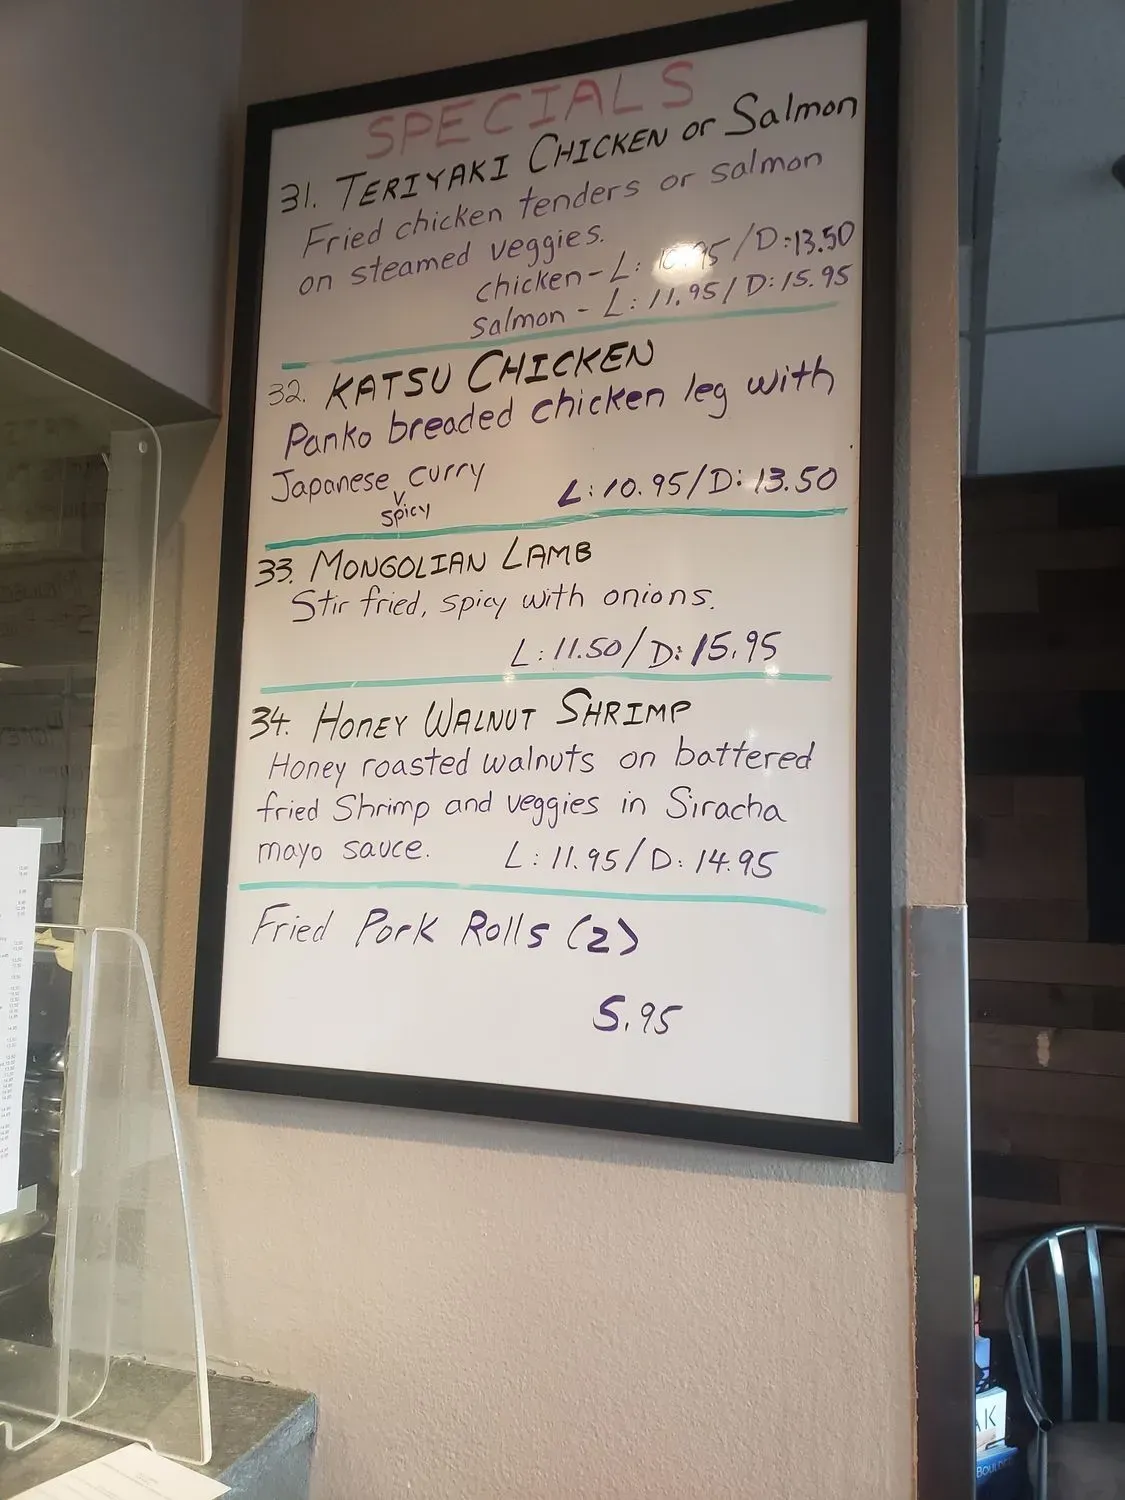 SPECIALS
31. TERIYAKI CHICKEN or Salmon
Fried chicken tenders or salmon
on steamed veggies.
chicken - L: 10.95/D:13.50
Salmon - L: 11.95/D:15.95
32. KATSU CHICKEN
Panko breaded chicken leg with
Japanese curry
spicy
L: 10.95/D: 13.50
33. MONGOLIAN LAMB
Stir fried, spicy with onions.
L: 11.50/D: 15.95
34. HONEY WALNUT SHRIMP
Honey roasted walnuts on battered
fried Shrimp and veggies in Siracha
mayo sauce. L: 11.95/D: 14.95
Fried Pork Rolls (2)
5.95
AK